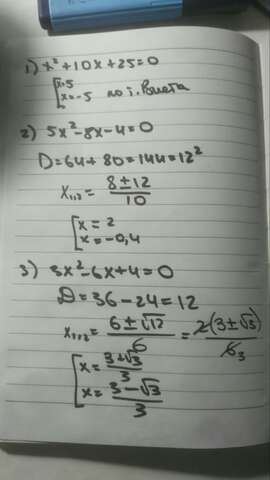 1) x² + 10x + 25 = 0
[x = 5
x = -5 по т. Виета
2) 5x² - 8x - 4 = 0
D = 64 + 80 = 144 = 12²
x₁,₂ = (8 ± 12)/10
[x = 2
x = -0,4
3) 3x² - 6x + 4 = 0
D = 36 - 24 = 12
x₁,₂ = (6 ± √12)/6 = 2(3 ± √3)/6 3
[x = (3 + √3)/3
x = (3 - √3)/3